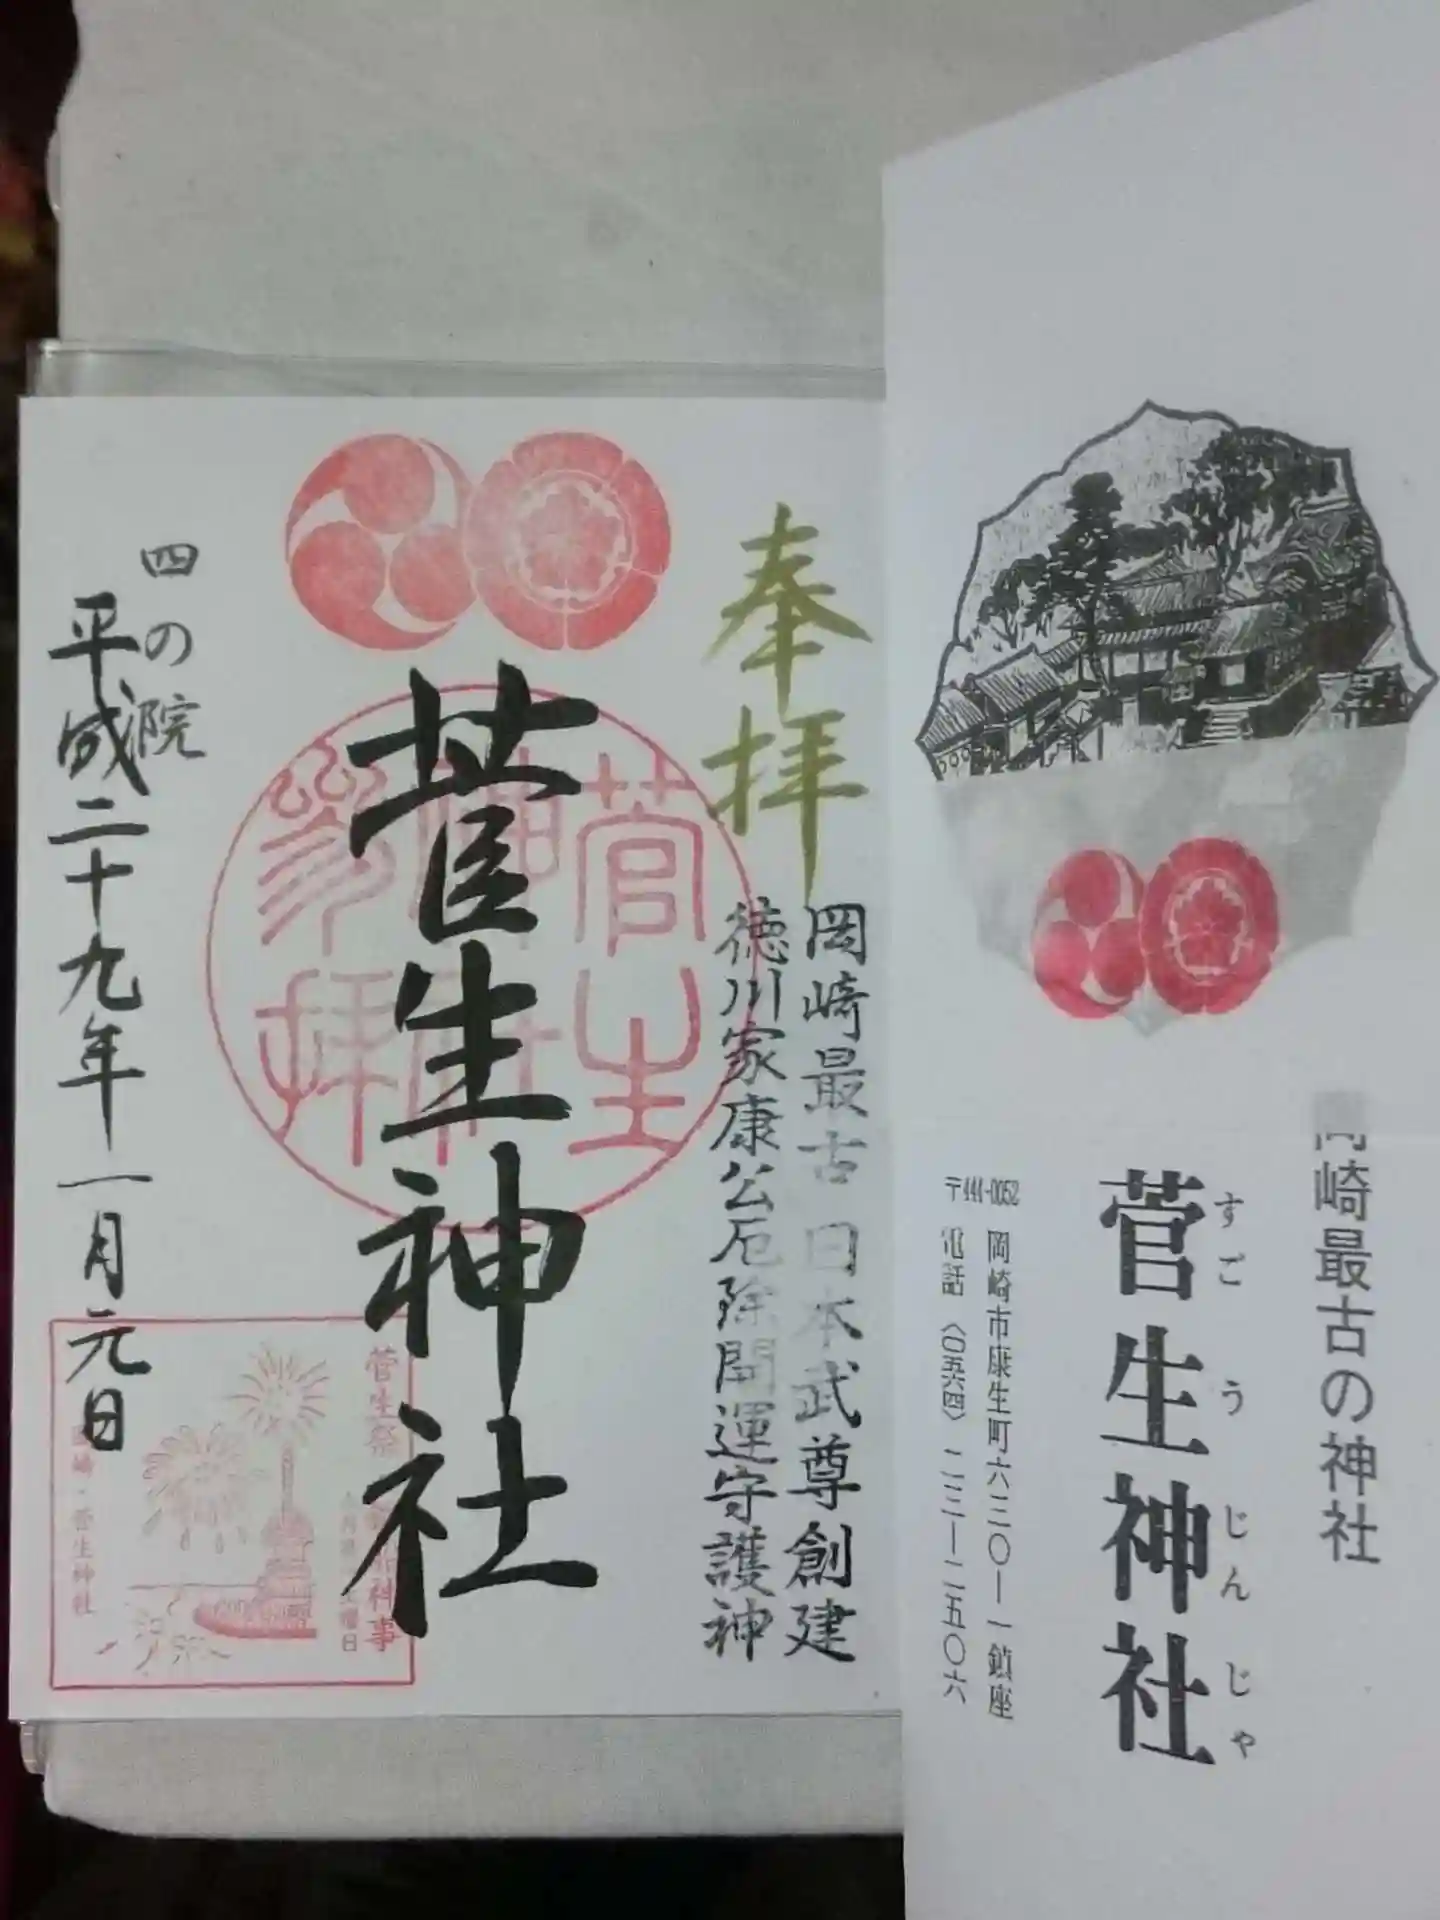 岡崎最古の神社
菅生神社
すごうじんじゃ
〒444-0052 岡崎市康生町六三〇ー一鎮座
電話〈〇五六四〉二三ー二五〇六
奉拝
岡崎最古 日本武尊創建
徳川家康公厄除開運守護神
菅生神社
菅生
神社
参拝
四の院
平成二十九年一月元日
菅生祭
神事
岡崎・菅生神社